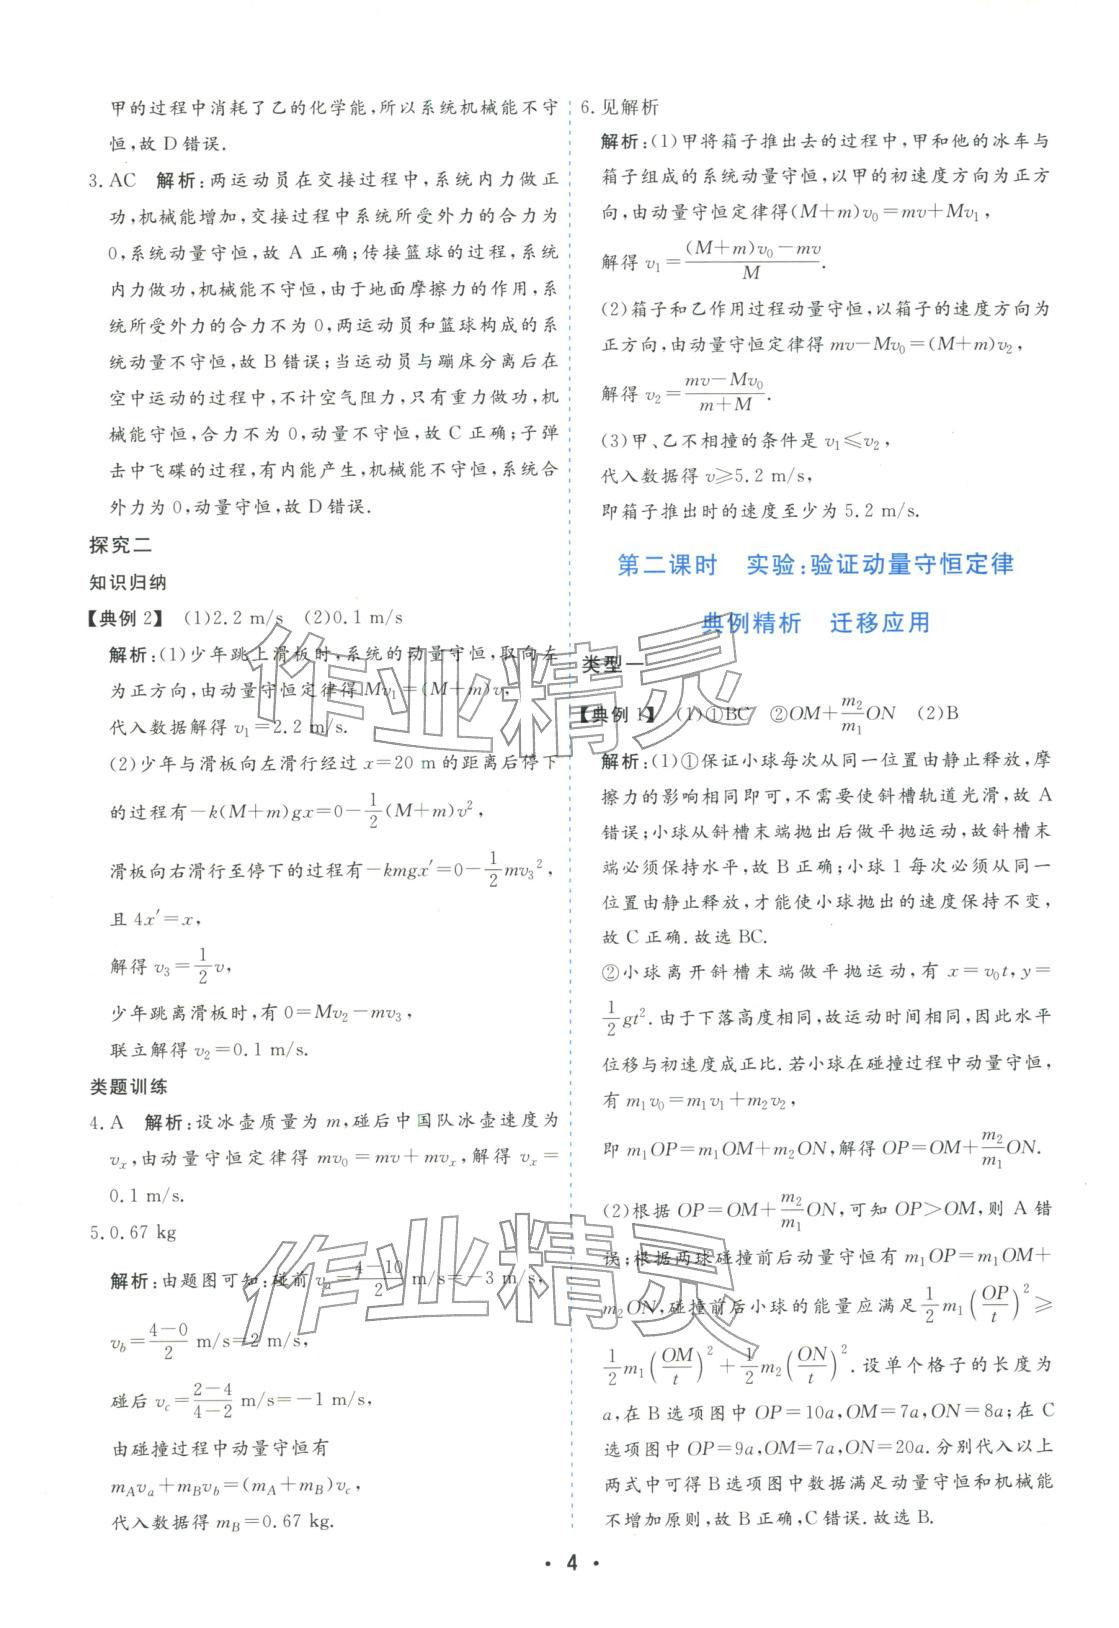 甲的过程中消耗了乙的化学能,所以系统机械能不守
恒,故 D 错误.
3. AC 解析:两运动员在交接过程中,系统内力做正
功,机械能增加,交接过程中系统所受外力的合力为
0,系统动量守恒,故 A 正确;传接篮球的过程,系统
内力做功,机械能不守恒,由于地面摩擦力的作用,系
统所受外力的合力不为 0,两运动员和篮球构成的系
统动量不守恒,故 B 错误;当运动员与蹦床分离后在
空中运动的过程中,不计空气阻力,只有重力做功,机
械能守恒,合力不为 0,动量不守恒,故 C 正确;子弹
击中飞碟的过程,有内能产生,机械能不守恒,系统合
外力为 0,动量守恒,故 D 错误.
探究二
知识归纳
【典例 2】 (1)2.2 m/s (2)0.1 m/s
解析:(1)少年跳上滑板时,系统的动量守恒,取向左
为正方向,由动量守恒定律得 Mv₁=(M+m)v,
代入数据解得 v₁=2.2 m/s.
(2)少年与滑板向左滑行经过 x=20 m 的距离后停下
的过程有−k(M+m)gx=0−1/2(M+m)v²,
滑板向右滑行至停下的过程有−kmgx′=0−1/2mv₃²,
且 4x′=x,
解得 v₃=1/2v,
少年跳离滑板时,有 0=Mv₂−mv₃,
联立解得 v₂=0.1 m/s.
类题训练
4. A 解析:设冰壶质量为 m,碰后中国队冰壶速度为
vₓ,由动量守恒定律得 mv₀=mv+mvₓ,解得 vₓ=
0.1 m/s.
5. 0.67 kg
解析:由题图可知:碰前 vₐ=(4−10)/2 m/s=−3 m/s,
v_b=(4−0)/2 m/s=2 m/s,
碰后 v_c=(2−4)/(4−2) m/s=−1 m/s,
由碰撞过程中动量守恒有
m_Av_a+m_Bv_b=(m_A+m_B)v_c,
代入数据得 m_B=0.67 kg.
6. 见解析
解析:(1)甲将箱子推出去的过程中,甲和他的冰车与
箱子组成的系统动量守恒,以甲的初速度方向为正方
向,由动量守恒定律得(M+m)v₀=mv+Mv₁,
解得 v₁=((M+m)v₀−mv)/M.
(2)箱子和乙作用过程动量守恒,以箱子的速度方向为
正方向,由动量守恒定律得 mv−Mv₀=(M+m)v₂,
解得 v₂=(mv−Mv₀)/(m+M).
(3)甲、乙不相撞的条件是 v₁≤v₂,
代入数据得 v≥5.2 m/s,
即箱子推出时的速度至少为 5.2 m/s.
第二课时 实验:验证动量守恒定律
典例精析 迁移应用
类型一
【典例 1】 (1)①BC ②OM+m₂/m₁ON (2)B
解析:(1)①保证小球每次从同一位置由静止释放,摩
擦力的影响相同即可,不需要使斜槽轨道光滑,故 A
错误;小球从斜槽末端抛出后做平抛运动,故斜槽末
端必须保持水平,故 B 正确;小球 1 每次必须从同一
位置由静止释放,才能使小球抛出的速度保持不变,
故 C 正确.故选 BC.
②小球离开斜槽末端做平抛运动,有 x=v₀t,y=
1/2gt².由于下落高度相同,故运动时间相同,因此水平
位移与初速度成正比.若小球在碰撞过程中动量守恒,
有 m₁v₀=m₁v₁+m₂v₂,
即 m₁OP=m₁OM+m₂ON,解得 OP=OM+m₂/m₁ON.
(2)根据 OP=OM+m₂/m₁ON,可知 OP>OM,则 A 错
误;根据两球碰撞前后动量守恒有 m₁OP=m₁OM+
m₂ON,碰撞前后小球的能量应满足1/2m₁(OP/t)²≥
1/2m₁(OM/t)²+1/2m₂(ON/t)².设单个格子的长度为
a,在 B 选项图中 OP=10a,OM=7a,ON=8a;在 C
选项图中 OP=9a,OM=7a,ON=20a.分别代入以上
两式中可得 B 选项图中数据满足动量守恒和机械能
不增加原则,故 B 正确,C 错误.故选 B.
· 4 ·
作业精灵
作业精灵